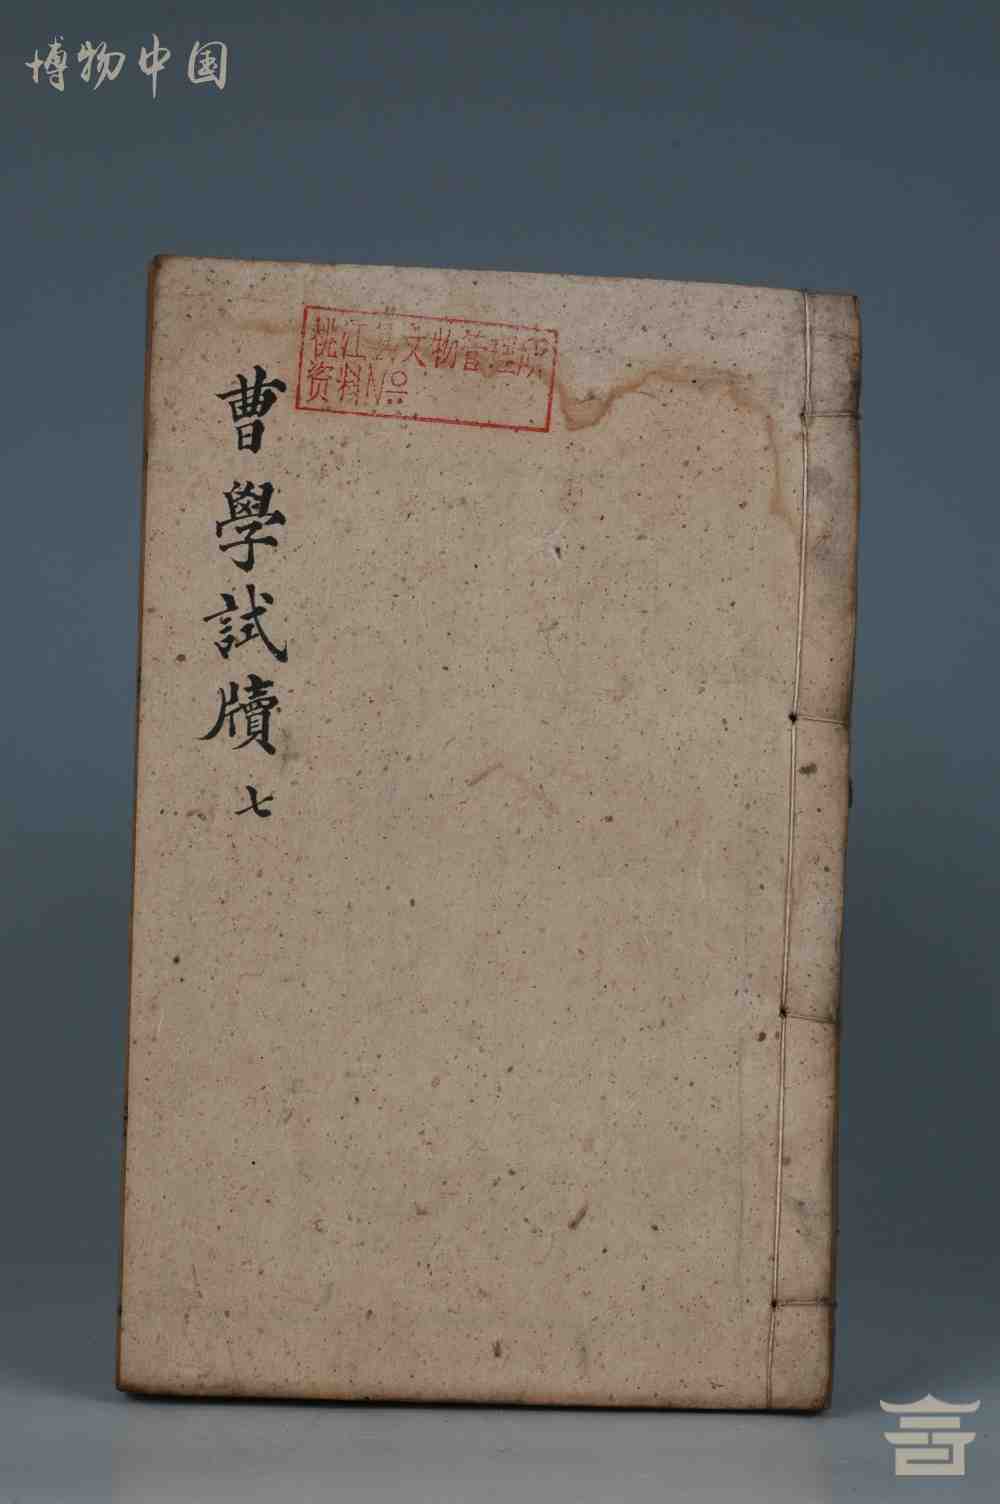 博物中国
桃江县文物管理所
资料No
曹學試牘 七